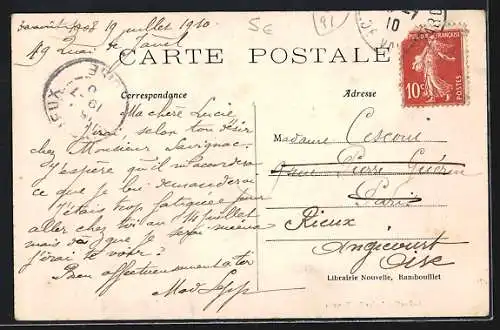 19 juillet 1910
49 Quai de
5€
91
10
CARTE POSTALE
RÉPUBLIQUE FRANÇAISE
10c
Correspondance
Adresse
Ma chère Lucie,
J'irai, selon ton désir
chez Monsieur Savignac.
J'espère qu'il m'accordera
ce que je lui demanderai
J'étais trop fatiguée pour
aller chez toi au 14 juillet
mais dès que je serai mieux
j'irai te voir.
Bien affectueusement à toi
Madame
rue Pierre Guérin
Paris
Rieux
Angicourt
Oise
Librairie Nouvelle, Rambouillet